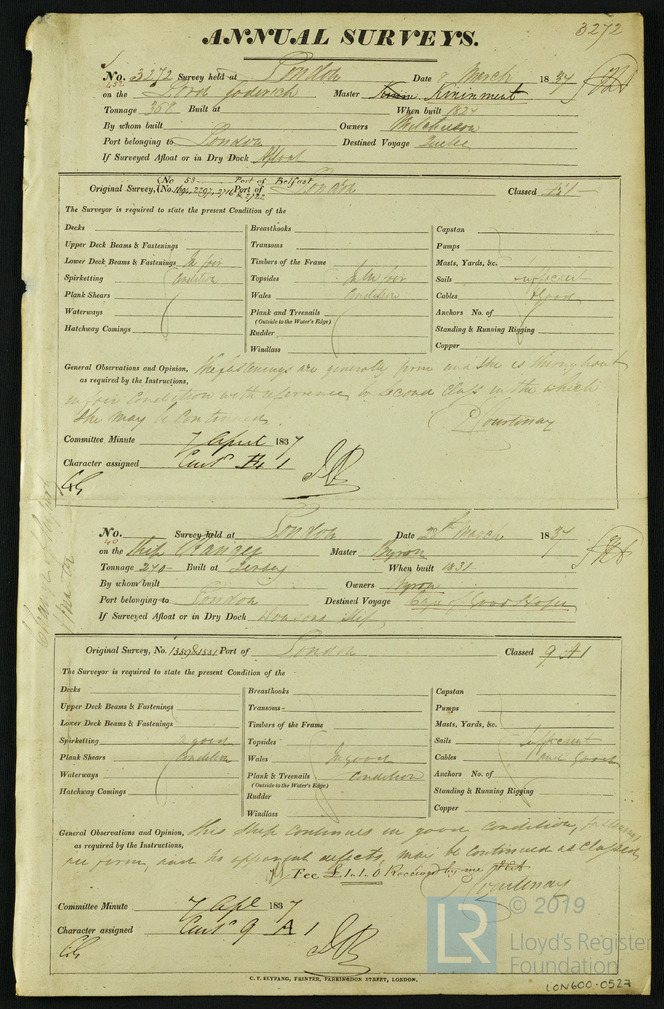 3272
ANNUAL SURVEYS.
No. 3272 Survey held at London Date March 1837
on the Lord Goderich Master Kininment
Tonnage 368 Built at When built
By whom built Owners
Port belonging to London Destined Voyage Quebec
If Surveyed Afloat or in Dry Dock Afloat
No 53 Port of Belfast
Original Survey, (No. Port of London Classed Æ1
The Surveyor is required to state the present Condition of the
Decks Breasthooks Capstan
Upper Deck Beams & Fastenings Transoms Pumps
Lower Deck Beams & Fastenings In fair Timbers of the Frame Masts, Yards, &c.
Spirketting Condition Topsides In fair Sails sufficient
Plank Shears Wales Condition Cables Good
Waterways Plank and Treenails Anchors No. of
(Outside to the Water's Edge)
Hatchway Comings Rudder Standing & Running Rigging
Windlass Copper
General Observations and Opinion, The fastenings are generally firm and she is throughout
as required by the Instructions, in fair Condition with reference to second Class in the which
she may be Continued
Courtenay
Committee Minute 7 April 1837
Character assigned Cont^d Æ 1
No. Survey held at London Date 28th March 1837
on the Ship Master Byron
Tonnage 240 Built at Jersey When built 1831
By whom built Owners Byron
Port belonging to London Destined Voyage Cape of Good Hope
If Surveyed Afloat or in Dry Dock
Original Survey, No. 1359&1551 Port of London Classed 9 A1
The Surveyor is required to state the present Condition of the
Decks Breasthooks Capstan
Upper Deck Beams & Fastenings Transoms Pumps
Lower Deck Beams & Fastenings Timbers of the Frame Masts, Yards, &c.
Spirketting In good Topsides Sails sufficient
Plank Shears Condition Wales In good Cables Good
Waterways Plank & Treenails Condition Anchors No. of
(Outside to the Water's Edge)
Hatchway Comings Rudder Standing & Running Rigging
Windlass Copper
General Observations and Opinion, This Ship continues in good condition,
as required by the Instructions, firm, and no apparent defects, may be continued as classed
Fee £1.1.0 Received by me
Courtenay
Committee Minute 7 Apl 1837
Character assigned Cont^d 9 A 1
C. F. SEYFANG, PRINTER, FARRINGDON STREET, LONDON.
LR
© 2019
Lloyd's Register
Foundation
LON600-0527